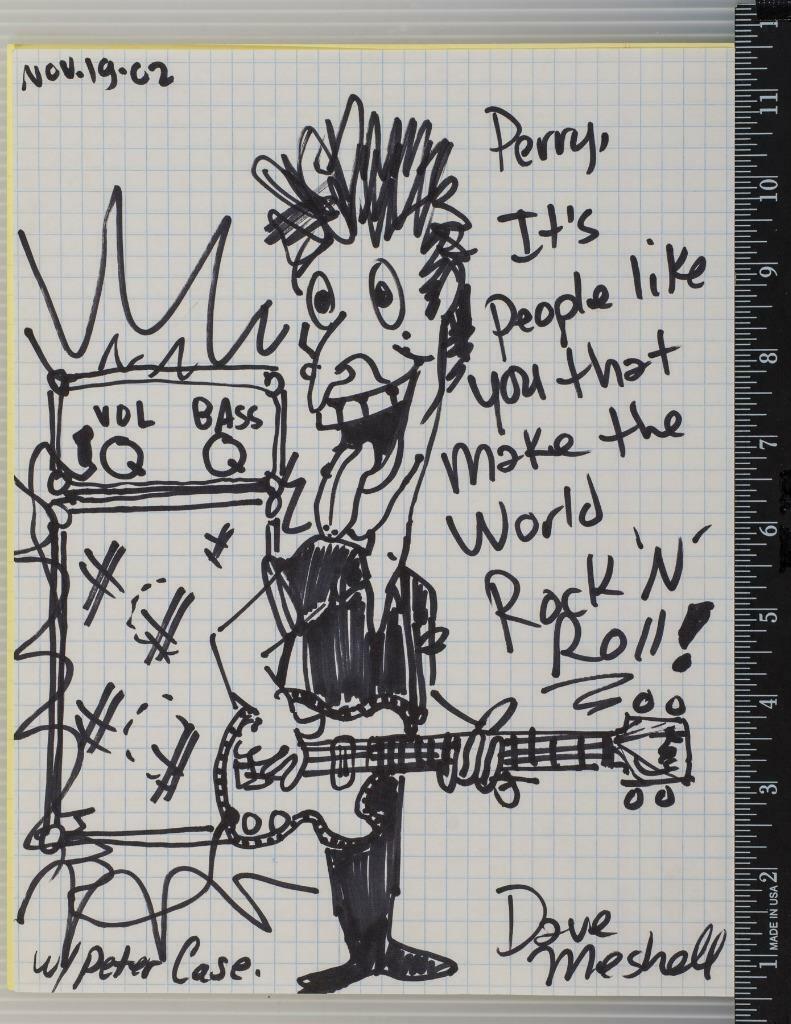 Nov. 19 - 02
Perry,
It's
People like
you that
make the
World
Rock 'N'
Roll!
VOL BASS
w/ Peter Case.
Dave
Meshell
11
10
9
8
7
6
5
4
3
2
1
MADE IN USA